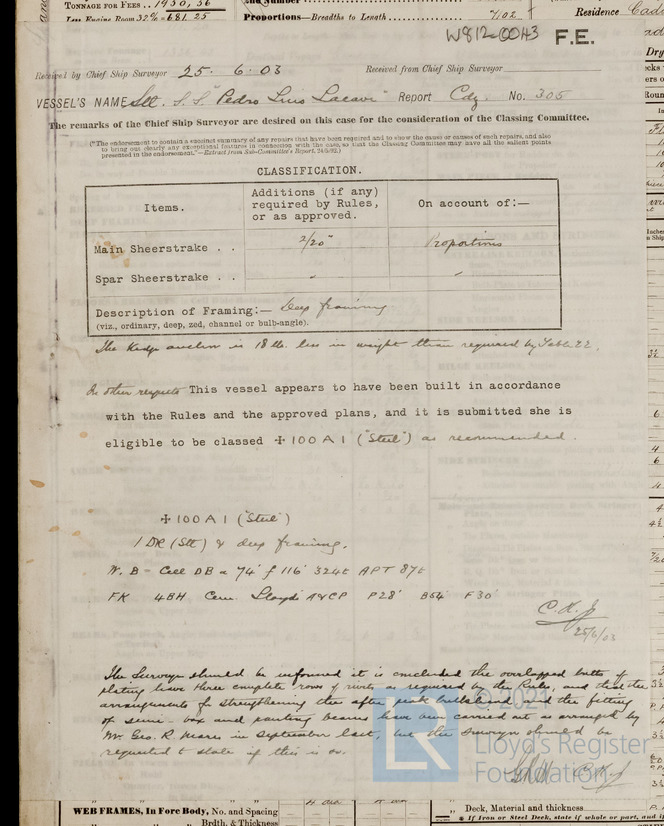 TONNAGE FOR FEES .. 1930, 36
Less Engine Room 32% = 681.25
Proportions—Breadths to Length 7.02
Residence
W812-0043
F.E.
Received by Chief Ship Surveyor 25. 6. 03
Received from Chief Ship Surveyor
VESSEL'S NAME Stl. S.S. "Pedro Luis Lacave" Report Cdz. No. 305
The remarks of the Chief Ship Surveyor are desired on this case for the consideration of the Classing Committee.
("The endorsement to contain a succinct summary of any repairs that have been required and to show the cause or causes of such repairs, and also
to bring out clearly any exceptional features in connection with the case, so that the Classing Committee may have all the salient points
presented in the endorsement."—Extract from Sub-Committee's Report, 24/5/92.)
CLASSIFICATION.
Items.
Additions (if any)
required by Rules,
or as approved.
On account of:—
Main Sheerstrake . . 2/20" Proportions
Spar Sheerstrake . . " "
Description of Framing:— Deep framing.
(viz., ordinary, deep, zed, channel or bulb-angle).
The Kedge anchor is 18 lb. less in weight than required by Table 22.
In other respects This vessel appears to have been built in accordance
with the Rules and the approved plans, and it is submitted she is
eligible to be classed ✠ 100 A 1 ("Steel") as recommended.
✠ 100 A 1 ("Steel")
1 DK (Stl) & deep framing.
W. B = Cell DB a 74' f 116' 324t APT 87t
FK 4BH Cem. Lloyd's A&CP P28' B64' F30'
25/6/03
The Surveyor should be informed it is concluded the overlapped butts of
plating have three complete rows of rivets as required by the Rules, and that the
arrangements for strengthening the after peak bulkhead and the fitting
of semi-box and panting beams have been carried out as arranged by
Mr. Geo. R. Mares in September last, but the Surveyor should be
requested to state if this is so.
© 2021
LR
Lloyd's Register
Foundation
WEB FRAMES, In Fore Body, No. and Spacing
Brdth. & Thickness
Deck, Material and thickness
* If Iron or Steel Deck, state if whole or part, and